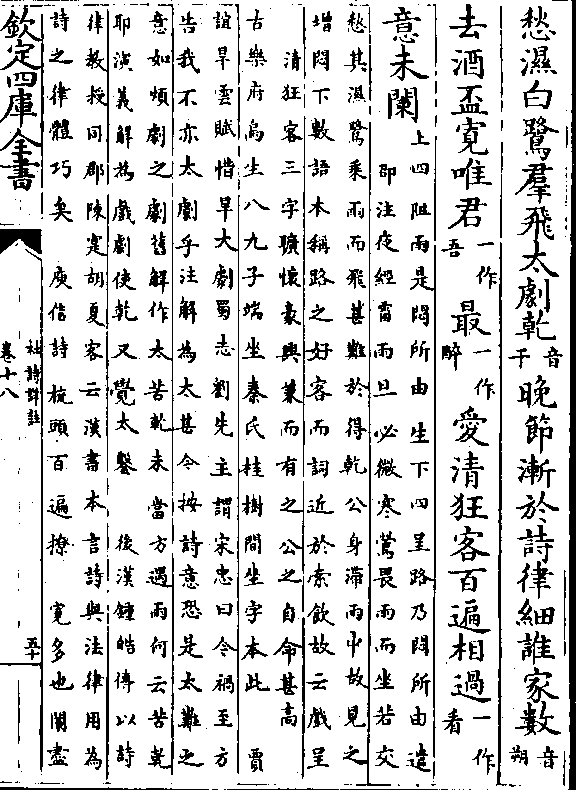 愁濕白鷺羣飛太劇乾音干晚節漸於詩律細誰家數音朔
去酒盃寛唯君一作吾最一作醉愛清狂客百遍相過一作看
意未闌
上四阻雨是悶所由生下四呈路乃悶所由遣
邵注夜經雷雨旦必微寒鶯畏雨而坐若交
愁其濕鷺乘雨而飛甚難於得乾公身滯雨中故見之
增悶下數語本稱路之好客而詞近於索飲故云戲呈
清狂客三字曠懷豪興兼而有之公之自命甚高
古樂府烏生八九子端坐秦氏桂樹間坐字本此 賈
誼旱雲賦惜旱大劇蜀志劉先主謂宋忠曰今禍至方
告我不亦太劇乎注解為太甚今按詩意恐是太難之
意如煩劇之劇舊解作太苦乾未當方遇雨何云苦乾
耶演義解為戲劇使乾又覺太鑿 後漢鍾皓傳以詩
律教授同郡陳寔胡夏客云漢書本言詩與法律用為
詩之律體巧矣 庾信詩梳頭百遍撩 寛多也闌盡
欽定四庫全書
杜詩詳註
卷十八
五十